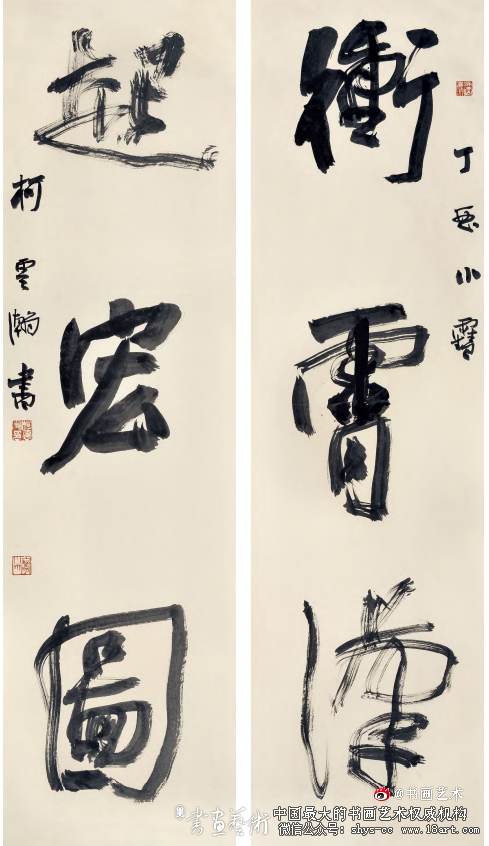 衝霄漢
丁酉小雪
起宏圖
柯雲瀚書
@书画艺术
書画藝術
中国最大的书画艺术权威机构
微信公众号：shys-cc www.18art.com